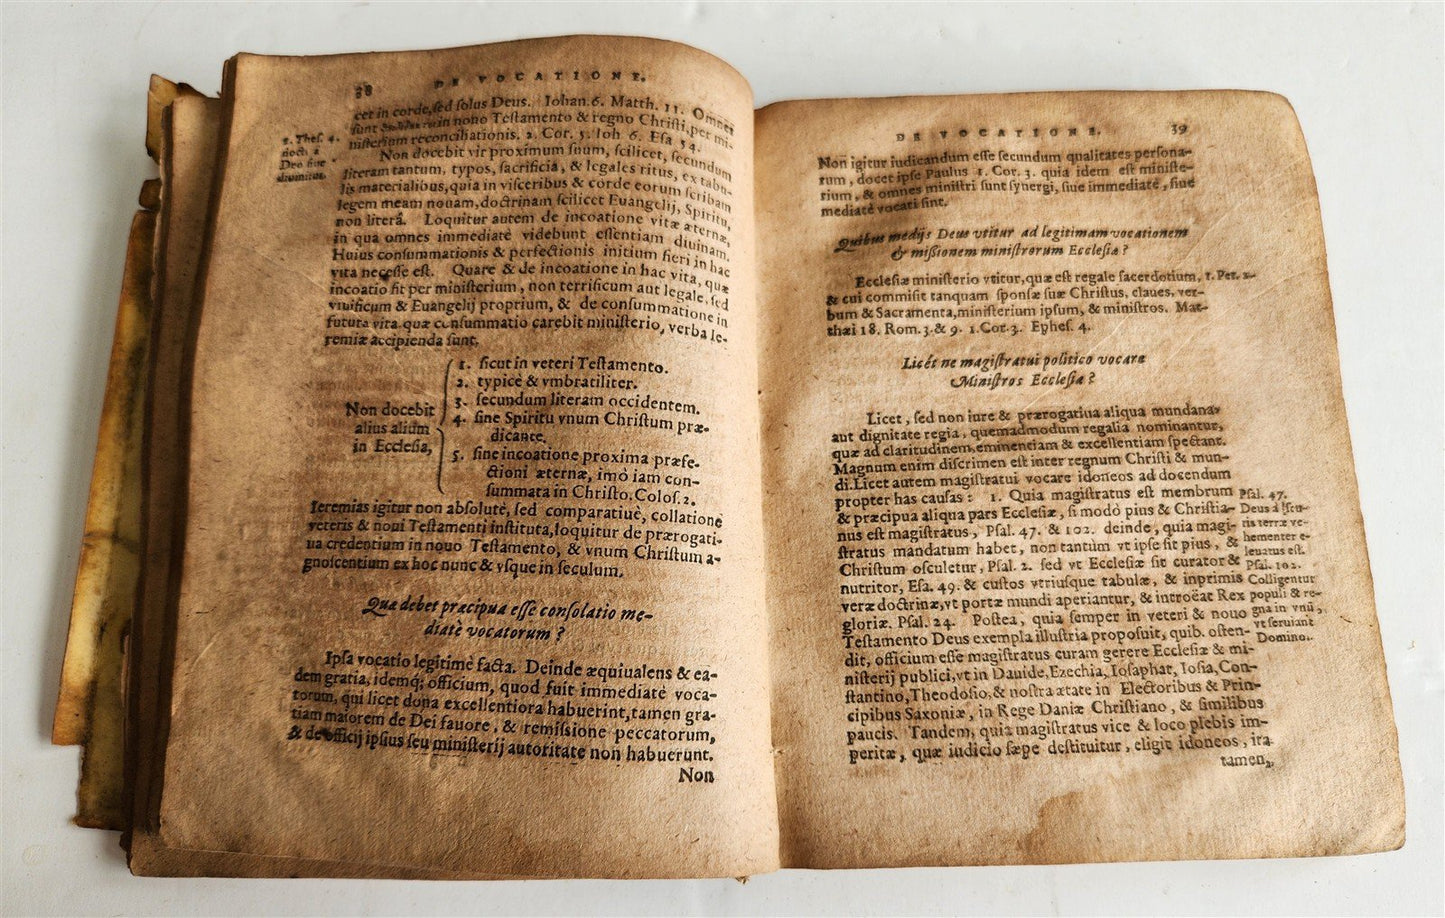 38 DE VOCATIONE.
cet in corde, sed solus Deus. Iohan. 6. Matth. 11. Omnes
sunt in nouo Testamento & regno Christi, per mi-
nisterium reconciliationis. 2. Cor. 5. Ioh 6. Esa 54.
1. Thes. 4.
Non docebit vir proximum suum, scilicet, secundum
literam tantum, typos, sacrificia, & legales ritus, ex tabu-
lis materialibus, quia in visceribus & corde eorum scribam
legem meam nouam, doctrinam scilicet Euangelij, Spiritu,
non literâ. Loquitur autem de incoatione vitæ æternæ,
in qua omnes immediatè videbunt essentiam diuinam.
Huius consummationis & perfectionis initium fieri in hac
vita necesse est. Quare & de incoatione in hac vita, quæ
incoatio fit per ministerium, non terrificum aut legale, sed
viuificum & Euangelij proprium, & de consummatione in
futura vita quæ consummatio carebit ministerio, verba Ie-
remiæ accipienda sunt.
Non docebit
alius alium
in Ecclesia,
1. sicut in veteri Testamento.
2. typicè & vmbratiliter.
3. secundum literam occidentem.
4. sine Spiritu vnum Christum præ-
dicante.
5. sine incoatione proxima præfe-
ctioni æternæ, imò iam con-
summata in Christo. Colos. 2.
Ieremias igitur non absolutè, sed comparatiuè, collatione
veteris & noui Testamenti instituta, loquitur de prærogati-
ua credentium in nouo Testamento, & vnum Christum a-
gnoscentium ex hoc nunc & vsque in seculum.
Quæ debet præcipua esse consolatio me-
diatè vocatorum?
Ipsa vocatio legitimè facta. Deinde æquiualens & ea-
dem gratia, idemq; officium, quod fuit immediatè voca-
torum, qui licet dona excellentiora habuerint, tamen gra-
tiam maiorem de Dei fauore, & remissione peccatorum,
& de officij ipsius seu ministerij autoritate non habuerunt.
Non
DE VOCATIONE. 39
Non igitur iudicandum esse secundum qualitates persona-
rum, docet ipse Paulus 1. Cor. 3. quia idem est ministe-
rium, & omnes ministri sunt synergi, siue immediatè, siue
mediatè vocati sint.
Quibus medijs Deus vtitur ad legitimam vocationem
& missionem ministrorum Ecclesiæ?
Ecclesiæ ministerio vtitur, quæ est regale sacerdotium. 1. Pet. 2.
& cui commisit tanquam sponsæ suæ Christus, claues, ver-
bum & Sacramenta, ministerium ipsum, & ministros. Mat-
thæi 18. Rom. 3. & 9. 1. Cor. 3. Ephes. 4.
Licét ne magistratui politico vocare
Ministros Ecclesiæ?
Licet, sed non iure & prærogatiua aliqua mundana,
aut dignitate regia, quemadmodum regalia nominantur,
quæ ad claritudinem, eminentiam & excellentiam spectant.
Magnum enim discrimen est inter regnum Christi & mun-
di. Licet autem magistratui vocare idoneos ad docendum
propter has causas: 1. Quia magistratus est membrum
& præcipua aliqua pars Ecclesiæ, si modò pius & Christia-
nus est magistratus, Psal. 47. & 102. deinde, quia magi-
stratus mandatum habet, non tantùm vt ipse sit pius, &
Christum osculetur, Psal. 2. sed vt Ecclesiæ sit curator &
nutritor, Esa. 49. & custos vtriusque tabulæ, & inprimis
veræ doctrinæ, vt portæ mundi aperiantur, & introëat Rex
gloriæ. Psal. 24. Postea, quia semper in veteri & nouo
Testamento Deus exempla illustria proposuit, quib. osten-
dit, officium esse magistratus curam gerere Ecclesiæ & mi-
nisterij publici, vt in Dauide, Ezechia, Iosaphat, Iosia, Con-
stantino, Theodosio, & nostra ætate in Electoribus & Prin-
cipibus Saxoniæ, in Rege Daniæ Christiano, & similibus
paucis. Tandem, quia magistratus vice & loco plebis im-
peritæ, quæ iudicio sæpe destituitur, eligit idoneos, ita
tamen,
Psal. 47.
Deus
ris terræ ve-
hementer e-
leuatus est.
Psal. 102.
Colligentur
populi & re-
gna in vnū,
vt seruiant
Domino.